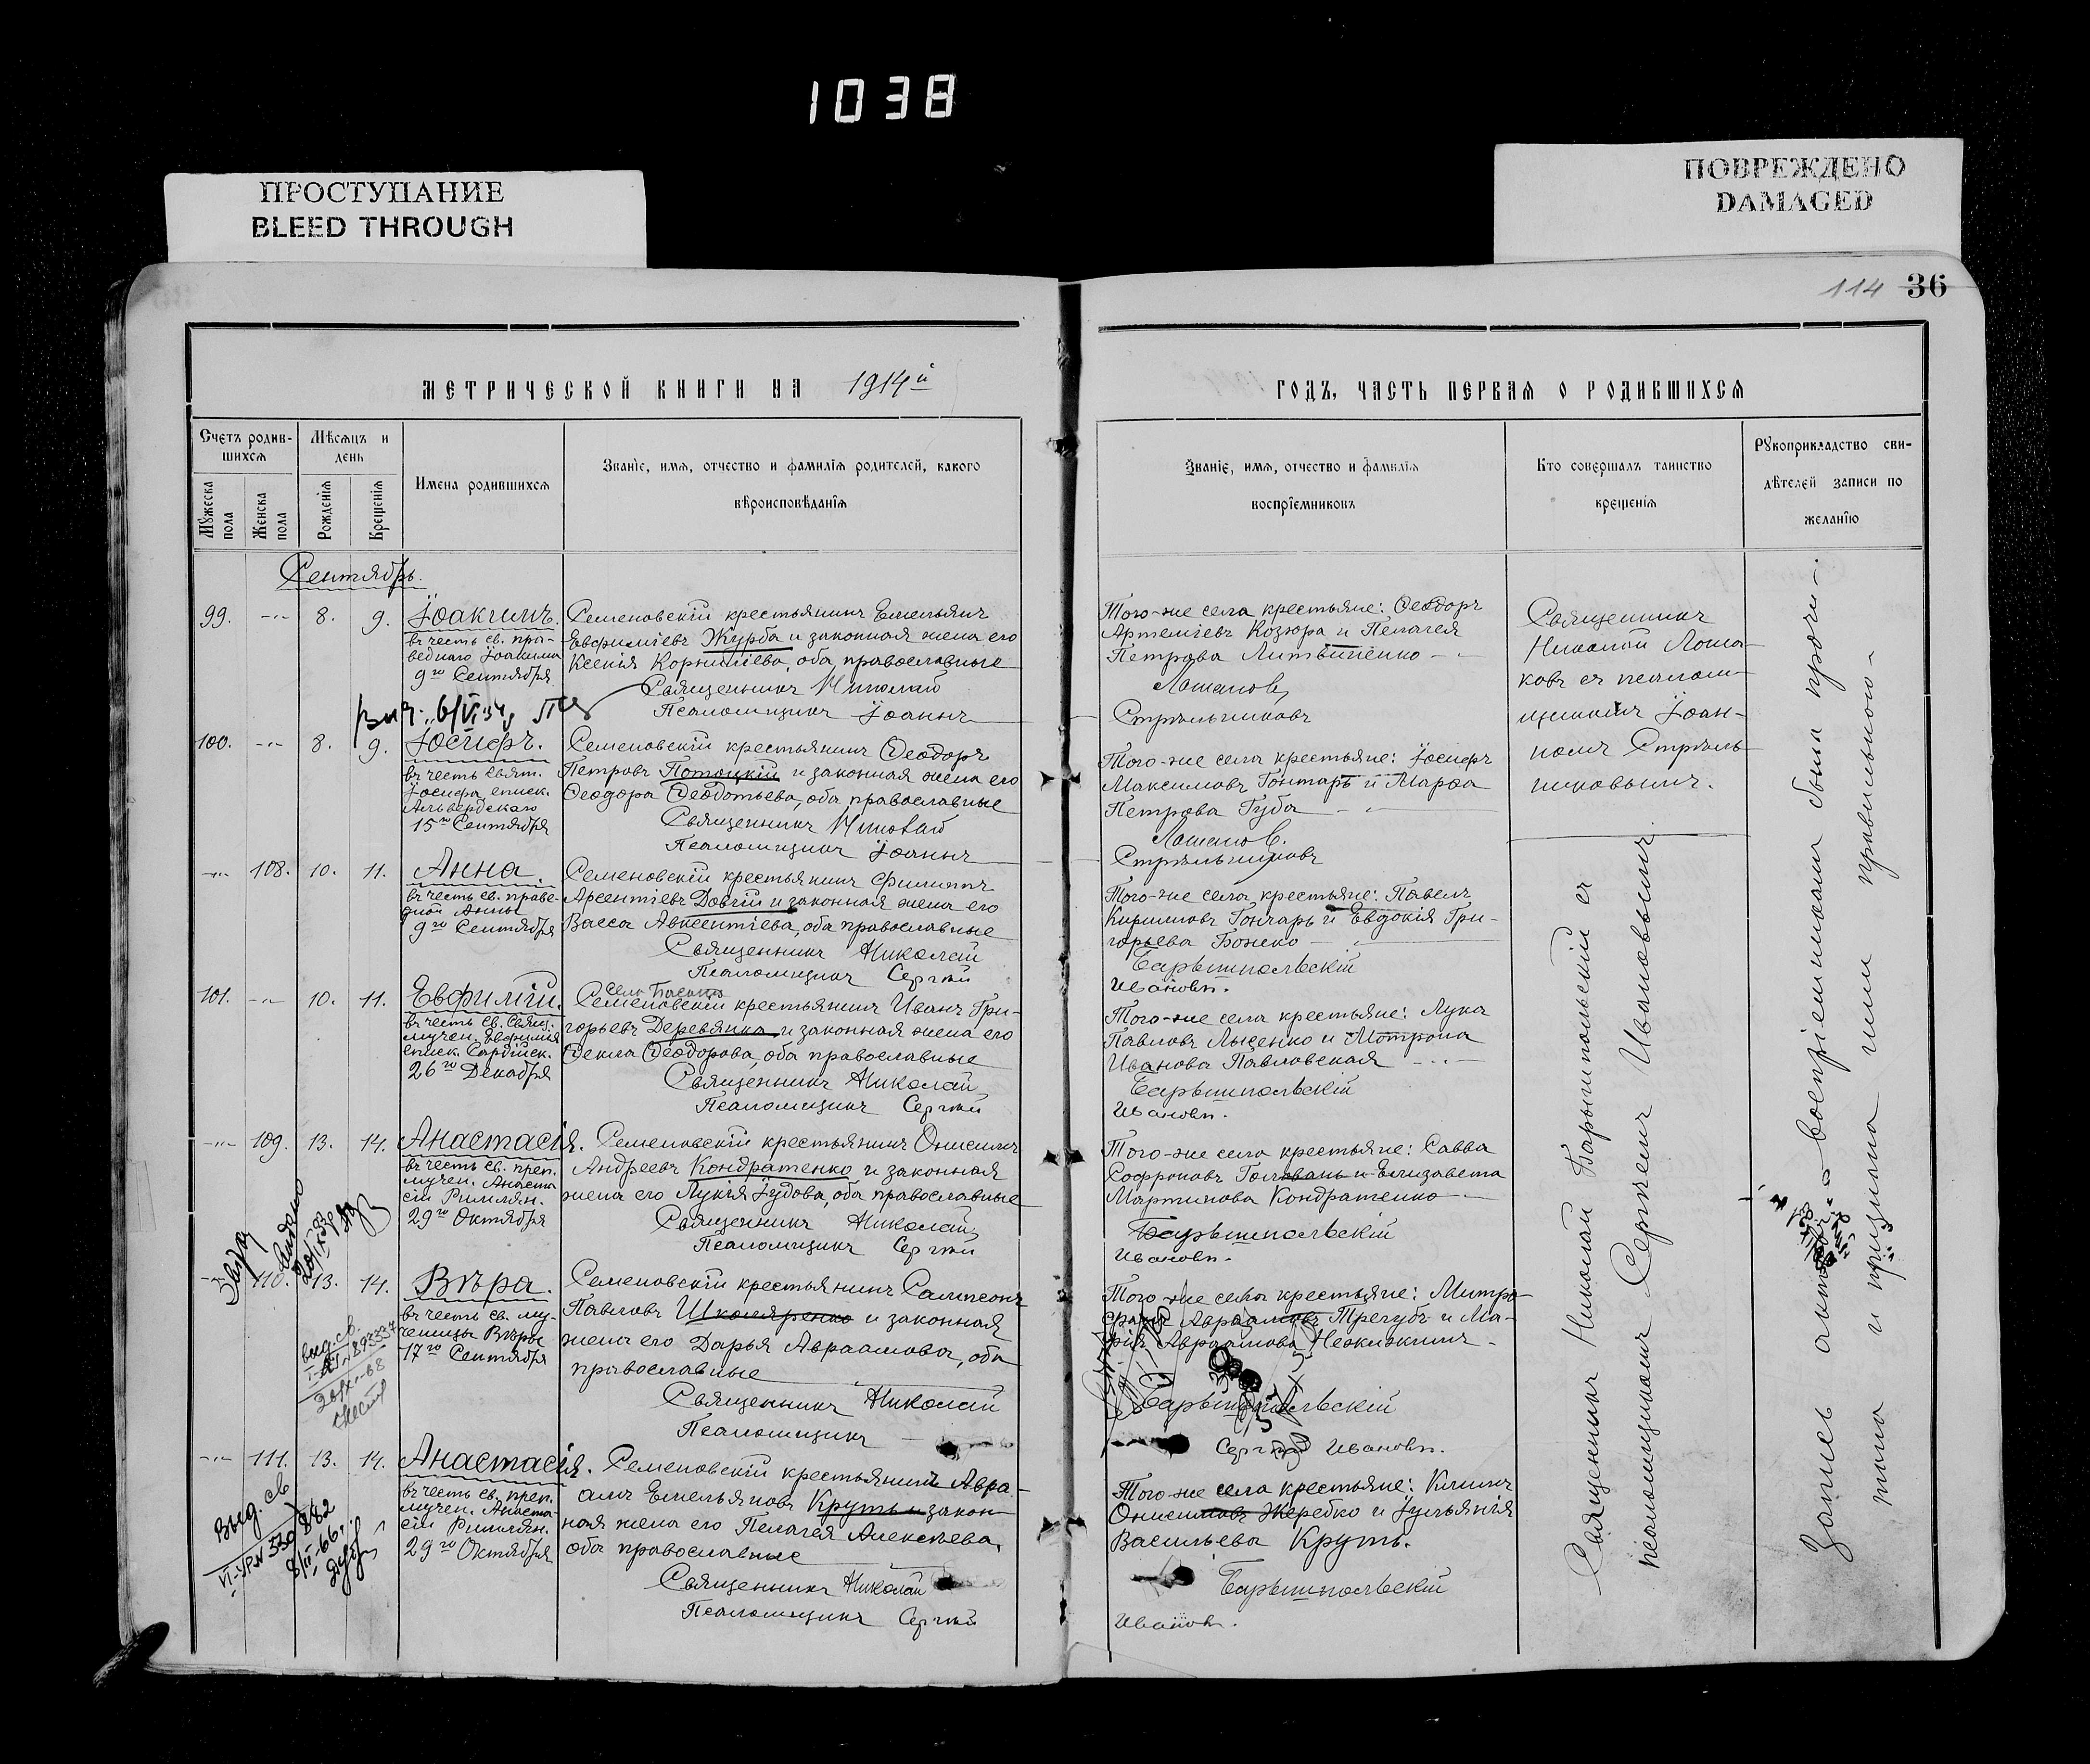 1038
ПРОСТУПАНИЕ
BLEED THROUGH
ПОВРЕЖДЕНО
DAMAGED
114 36
МЕТРИЧЕСКОЙ КНИГИ НА 1914й
ГОДЪ, ЧАСТЬ ПЕРВАЯ О РОДИВШИХСЯ
Счетъ родив-
шихся
Мѣсяцъ и
день
Имена родившихся
Званіе, имя, отчество и фамилія родителей, какого
вѣроисповѣданія
Мужеска
пола
Женска
пола
Рожденія
Крещенія
Званіе, имя, отчество и фамилія
воспріемниковъ
Кто совершалъ таинство
крещенія
Рукоприкладство сви-
дѣтелей записи по
желанію
Сентябрь.
99. -„- 8. 9. Іоакимъ.
въ честь св. пра-
веднаго Іоакима
9го Сентября
Семеновскій крестьянинъ Емельянъ
Евфиміевъ Журба и законная жена его
Ксенія Корниліева, оба православные
Священникъ Николай
Псаломщикъ Іоаннъ
Того-же села крестьяне: Ѳеодоръ
Артеміевъ Козюра и Пелагея
Петрова Литвиненко
Лошаковъ
Стрѣльниковъ
Священникъ
Николай Лоша-
ковъ съ псалом-
щикомъ Іоан-
номъ Стрѣль-
никовымъ.
100. -„- 8. 9. Іосифъ.
въ честь Свят.
Іосифа, еписк.
Альвердскаго
15го Сентября
Семеновскій крестьянинъ Ѳеодоръ
Петровъ Потоцкій и законная жена его
Ѳеодора Ѳеодотьева, оба православные
Священникъ Николай
Псаломщикъ Іоаннъ
Того-же села крестьяне: Іосифъ
Максимовъ Гонтарь и Марѳа
Петрова Губа
Лошаковъ.
Стрѣльниковъ
-„- 108. 10. 11. Анна.
въ честь св. праве-
дной Анны
9го Сентября
Семеновскій крестьянинъ Филиппъ
Арсентіевъ Довгій и законная жена его
Васса Авксентіева, оба православные
Священникъ Николай
Псаломщикъ Сергѣй
Того-же села крестьяне: Павелъ
Кирилловъ Гончаръ и Евдокія Гри-
горьева Божко
Барышпольскій
Ивановъ.
101. -„- 10. 11. Евфимій.
въ честь св. Свящ.
мучен. Евфимія
еписк. Сардійск.
26го Декабря
Семеновскій крестьянинъ Иванъ Гри-
горьевъ Деревянка и законная жена его
Ѳекла Ѳеодорова, оба православные
Священникъ Николай
Псаломщикъ Сергѣй
Того-же села крестьяне: Лука
Павловъ Лысенко и Мотрона
Иванова Павловская
Барышпольскій
Ивановъ.
-„- 109. 13. 14. Анастасія.
въ честь св. преп.
мучен. Анаста
сіи Римлян.
29го Октября
Семеновскій крестьянинъ Онисимъ
Андреевъ Кондратенко и законная
жена его Лукія Іудова, оба православные
Священникъ Николай
Псаломщикъ Сергѣй
Того-же села крестьяне: Савва
Софроновъ Головань и Елизавета
Мартинова Кондратенко
Барышпольскій
Ивановъ.
110. 13. 14. Вѣра.
въ честь св. му-
ченицы Вѣры
17го Сентября
Семеновскій крестьянинъ Сампсонъ
Павловъ Школяренко и законная
жена его Дарья Авраамова, оба
православные
Священникъ Николай
Псаломщикъ
Того-же села крестьяне: Митро-
фанъ Авраамовъ Трегубъ и Ма-
рія Авраамова
Барышпольскій
Сергѣй Ивановъ.
-„- 111. 13. 14. Анастасія.
въ честь св. преп.
мучен. Анаста-
сіи Римлян.
29го Октября
Семеновскій крестьянинъ Авра-
амъ Емельяновъ Круть и закон-
ная жена его Пелагея Алексѣева,
оба православные
Священникъ Николай
Псаломщикъ Сергѣй
Того-же села крестьяне: Климъ
Онисимовъ Жеребко и Іульянія
Васильева Круть.
Барышпольскій
Ивановъ.
Священникъ Николай Барышпольскій съ
псаломщикомъ Сергѣемъ Ивановымъ
Запись актовъ воспріемниками была прочи-
тана и признана ими правильною
выд. св.